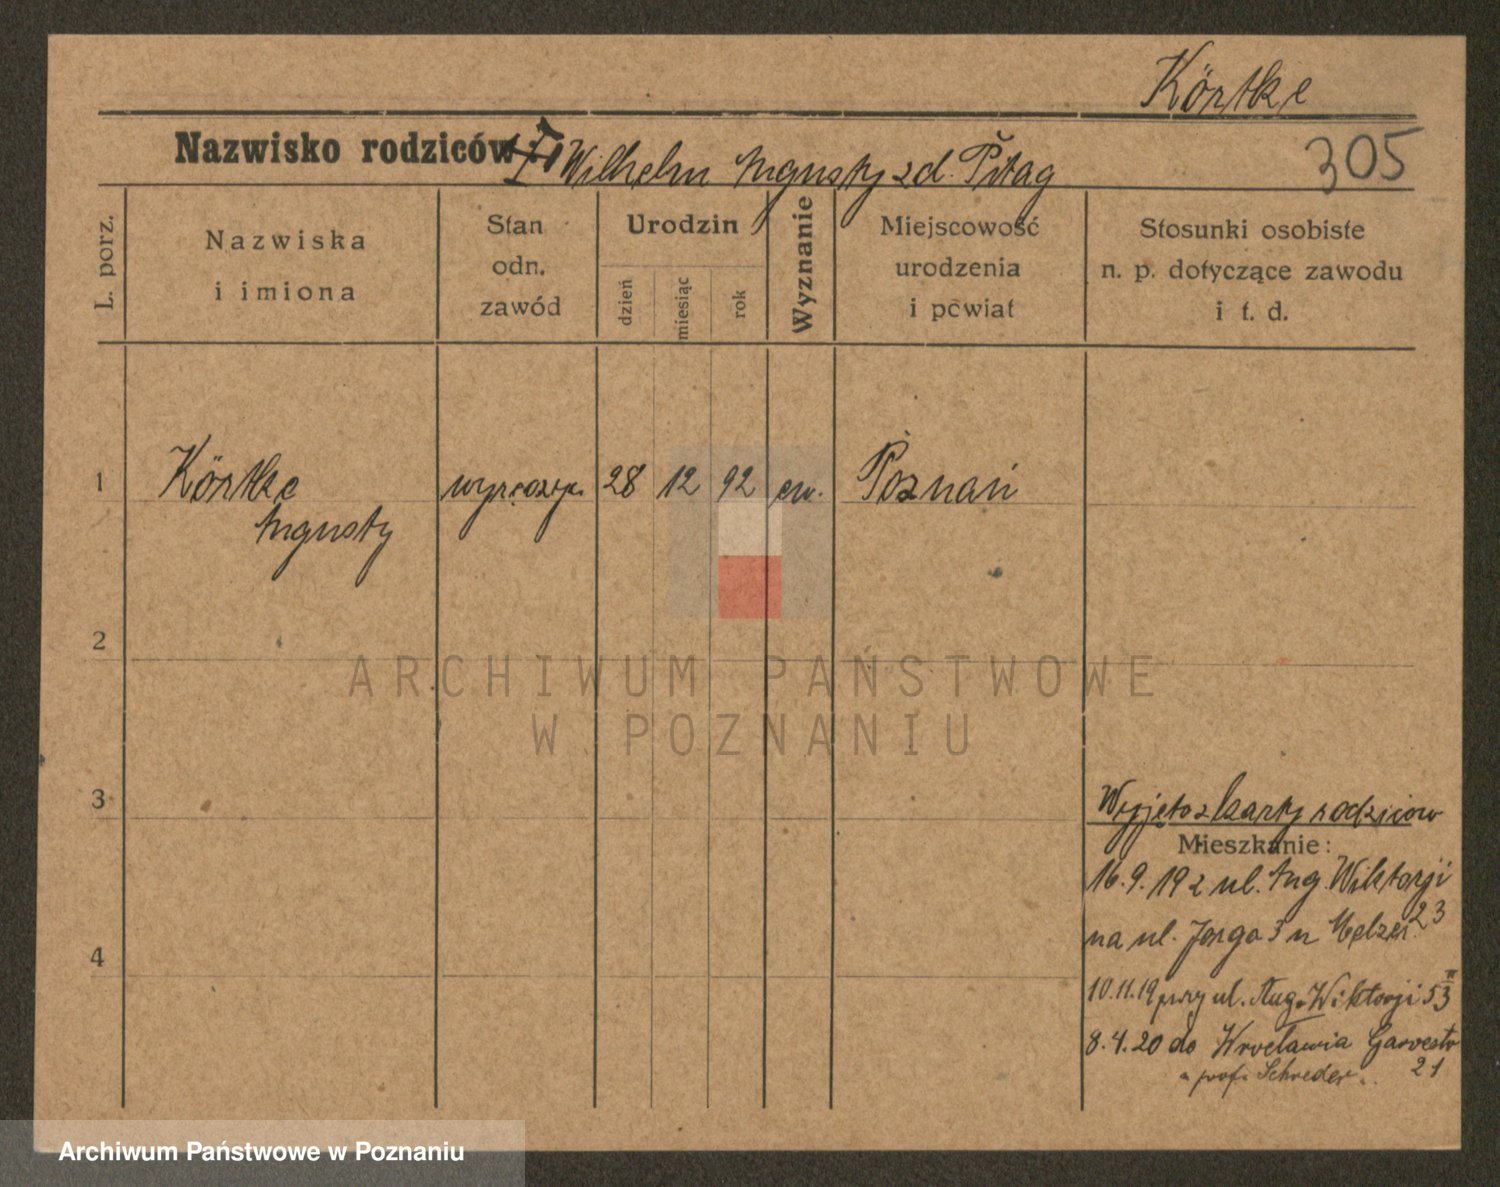 Körtke
305
Nazwisko rodziców Wilhelm Augusty zd. Pitag
L. porz.
Nazwiska
i imiona
Stan
odn.
zawód
Urodzin
dzień
miesiąc
rok
Wyznanie
Miejscowość
urodzenia
i powiat
Stosunki osobiste
n. p. dotyczące zawodu
i t. d.
1
Körtke
Augusty
wyręczyc.
28 12 92 ew. Poznań
2
ARCHIWUM PAŃSTWOWE
W POZNANIU
3
Wyjęto z karty rodziców
Mieszkanie:
16.9.19 z ul. Aug. Wiktorji
23
na ul. Jorga 3 u Melzer
4
10.11.19 przy ul. Aug. Wiktorji 53 II
8.4.20 do Wrocławia Garvestr
21
u prof. Schreder.
Archiwum Państwowe w Poznaniu